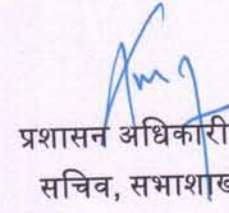 प्रशासन अधिकारी
सचिव, सभाशाख